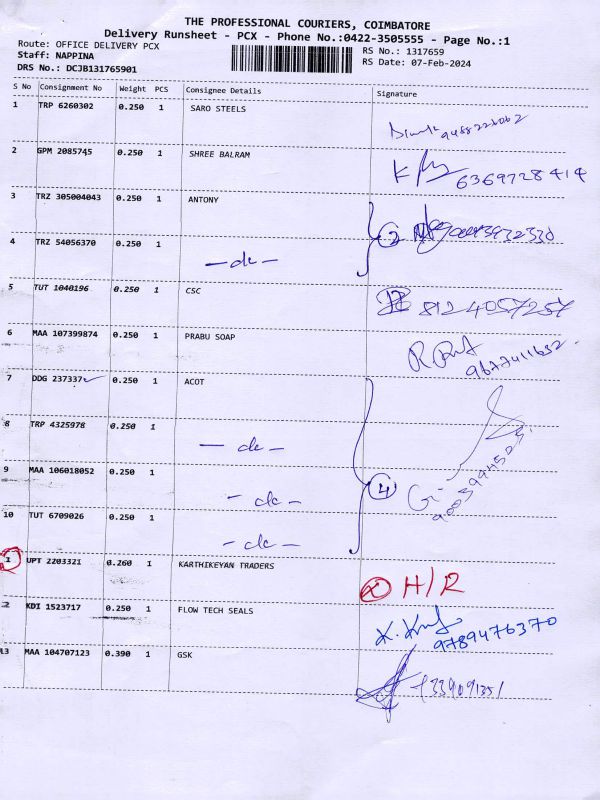 THE PROFESSIONAL COURIERS, COIMBATORE
Delivery Runsheet - PCX - Phone No.:0422-3505555 - Page No.:1
Route: OFFICE DELIVERY PCX
RS No.: 1317659
Staff: NAPPINA
RS Date: 07-Feb-2024
DRS No.: DCJB131765901
S No Consignment No Weight PCS Consignee Details Signature
1 TRP 6260302 0.250 1 SARO STEELS
2 GPM 2085745 0.250 1 SHREE BALRAM
6369728414
3 TRZ 305004043 0.250 1 ANTONY
2
4 TRZ 54056370 0.250 1
- dc -
5 TUT 1040196 0.250 1 CSC 8124057257
6 MAA 107399874 0.250 1 PRABU SOAP
9677411632
7 DDG 237337 0.250 1 ACOT
8 TRP 4325978 0.250 1
- dc -
9 MAA 106018052 0.250 1
4
- dc -
10 TUT 6709026 0.250 1
- dc -
1 UPT 2203321 0.260 1 KARTHIKEYAN TRADERS
H/R
2 KDI 1523717 0.250 1 FLOW TECH SEALS
9789476370
13 MAA 104707123 0.390 1 GSK